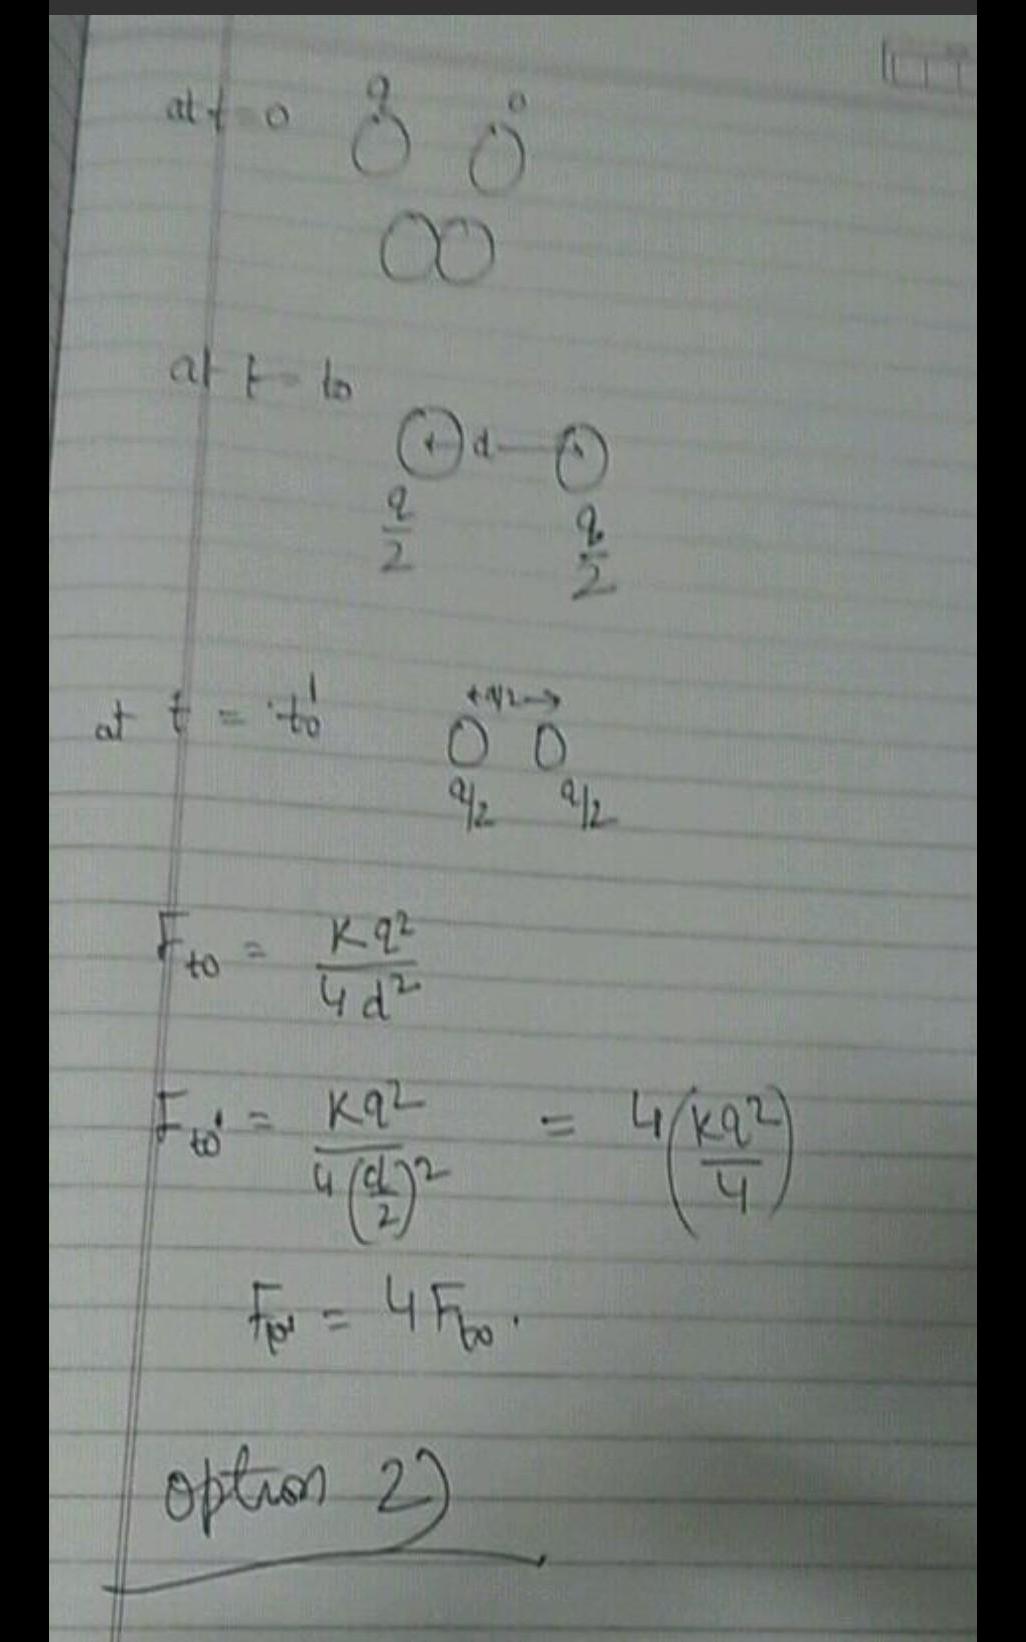 at t = 0 q 0
at t = to
d
q/2 q/2
at t = to'
q/2 q/2
Fto = Kq²/4d²
Fto' = Kq²/4(d/2)² = 4(Kq²/4)
Fto' = 4Fto.
option 2)